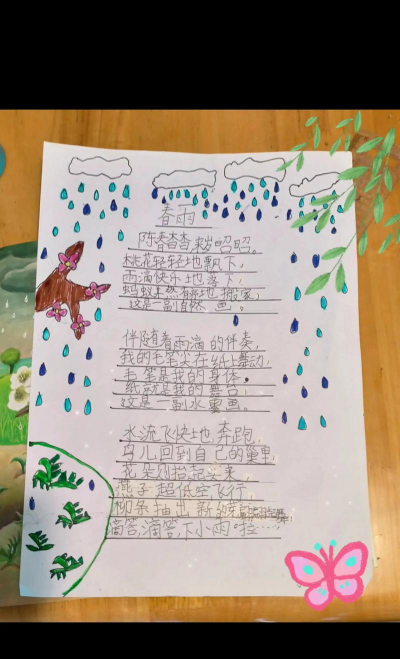 春雨
桃花轻轻地飘下,
雨滴快乐地落下,
蚂蚁井然有序地搬家,
这是一副自然画。
伴随着雨滴的伴奏,
我的毛笔尖在纸上舞动,
毛笔是我的身体,
纸就是我的舞台,
这是一副水墨画。
水流飞快地奔跑,
鸟儿回到自己的巢里,
花朵则抬起头来,
燕子超低空飞行,
柳条抽出新的
滴答,滴答,下小雨啦……